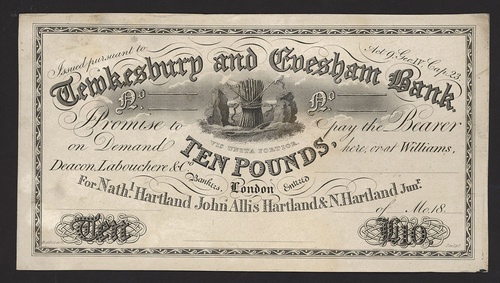 Issued pursuant to Act 9. Geo. IV. Cap. 23.
Tewkesbury and Evesham Bank.
No. No.
VIS UNITA FORTIOR.
Promise to pay the Bearer
on Demand TEN POUNDS, here, or at Williams,
Deacon, Labouchere & Co. Bankers, London
For Nathl. Hartland John Allis Hartland & N. Hartland Junr.
of Mo. 18
Ten £10.